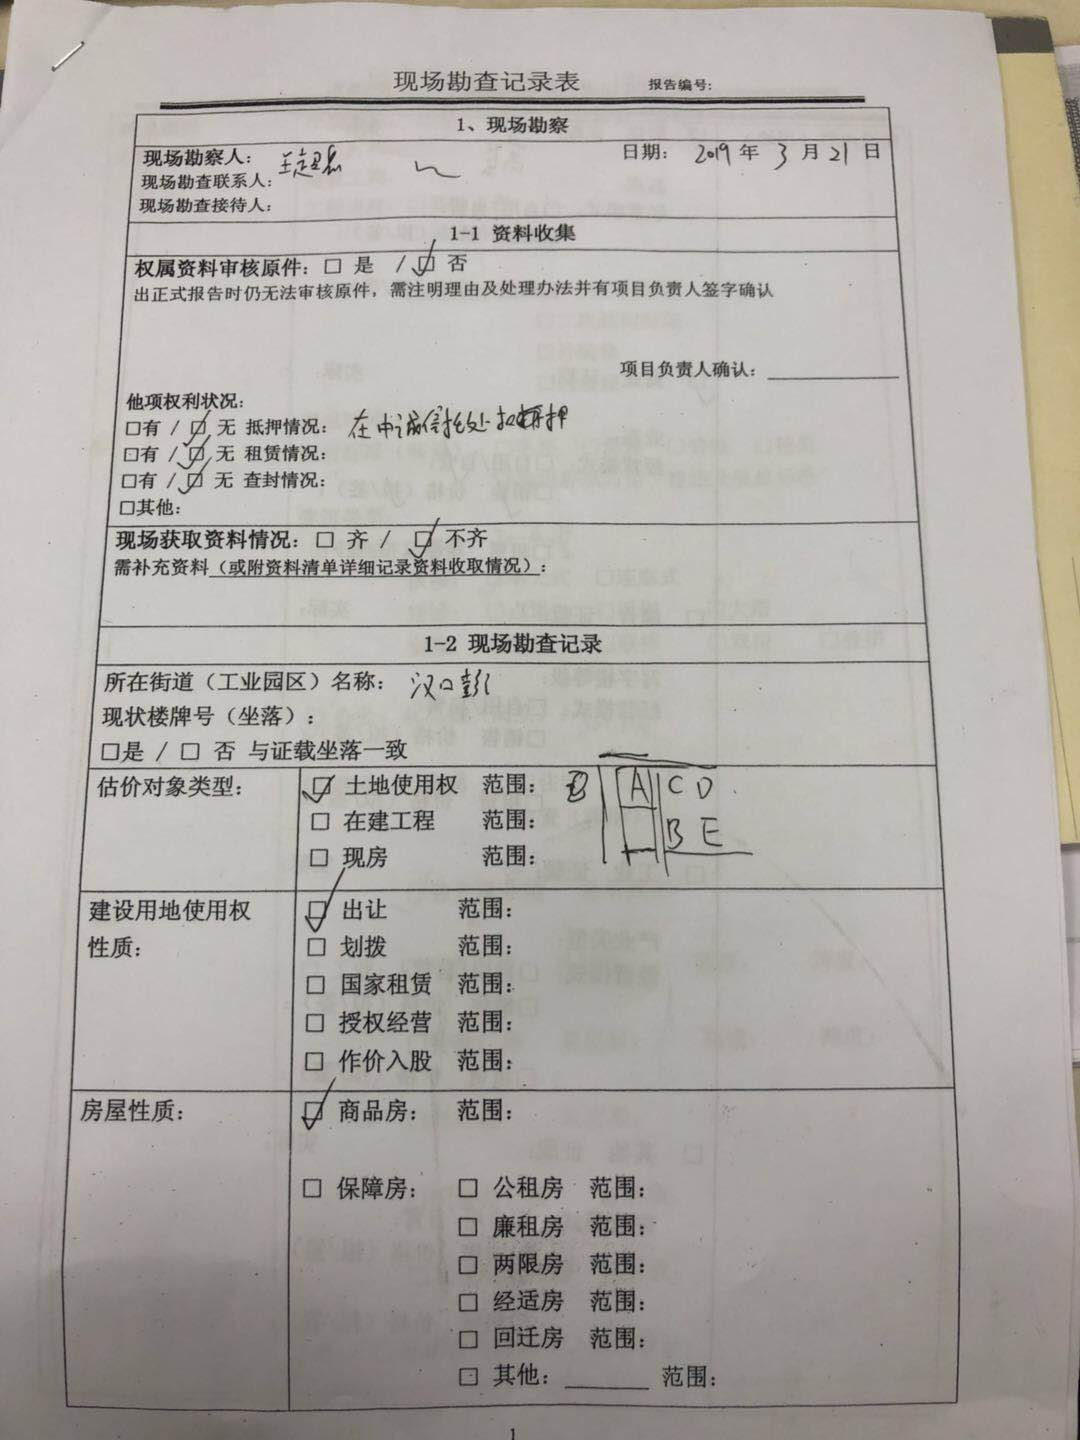 现场勘查记录表 报告编号：
1、现场勘察
现场勘察人： 日期： 2019 年 3 月 21 日
现场勘查联系人：
现场勘查接待人：
1-1 资料收集
权属资料审核原件：□ 是 /☑ 否
出正式报告时仍无法审核原件，需注明理由及处理办法并有项目负责人签字确认
项目负责人确认：
他项权利状况：
□有 /☑ 无 抵押情况： 在中诚信托处 抵押
□有 /☑ 无 租赁情况：
□有 /☑ 无 查封情况：
□其他：
现场获取资料情况：□ 齐 / ☑ 不齐
需补充资料（或附资料清单详细记录资料收取情况）：
1-2 现场勘查记录
所在街道（工业园区）名称： 汉口
现状楼牌号（坐落）：
□是 / □ 否 与证载坐落一致
估价对象类型： ☑ 土地使用权 范围： A C D
□ 在建工程 范围： B E
□ 现房 范围：
建设用地使用权 ☑ 出让 范围：
性质： □ 划拨 范围：
□ 国家租赁 范围：
□ 授权经营 范围：
□ 作价入股 范围：
房屋性质： ☑ 商品房： 范围：
□ 保障房： □ 公租房 范围：
□ 廉租房 范围：
□ 两限房 范围：
□ 经适房 范围：
□ 回迁房 范围：
□ 其他：______ 范围：
1